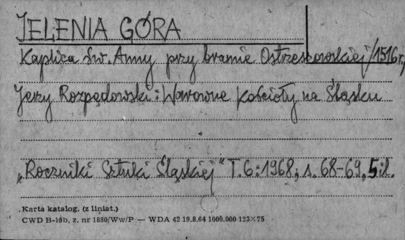 JELENIA GÓRA
Kaplica św. Anny przy bramie Ostrzeszowskiej /1516r,
Jerzy Rozpędowski: Warowne kościoły na Śląsku
"Roczniki Sztuki Śląskiej" T.6:1968, s. 68-69, 5 il.
Karta katalog. (z liniat.)
CWD B-16b, z. nr 1880/Ww/P — WDA 42 19.8.64 1000.000 125×75